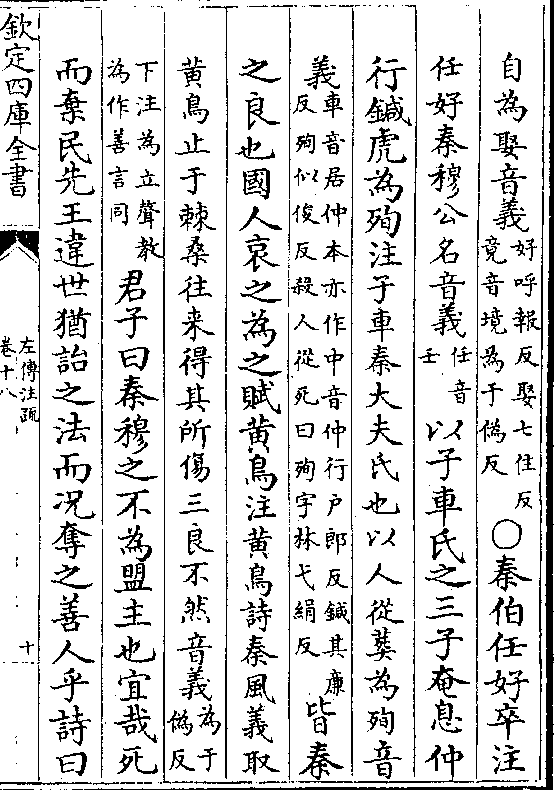 自為娶音義好呼報反娶七住反竟音境為于偽反○秦伯任好卒注
任好秦穆公名音義任音壬以子車氏之三子奄息仲
行鍼虎為殉注子車秦大夫氏也以人從葬為殉音
義車音居仲本亦作中音仲行户郎反鍼其亷反殉似俊反殺人從死曰殉字林弋絹反皆秦
之良也國人哀之為之賦黄鳥注黄鳥詩秦風義取
黄鳥止于棘桑往来得其所傷三良不然音義為于偽反
下注為立聲教為作善言同君子曰秦穆之不為盟主也宜哉死
而棄民先王違世猶詒之法而况奪之善人乎詩曰
欽定四庫全書
左傳注疏
卷十八
十